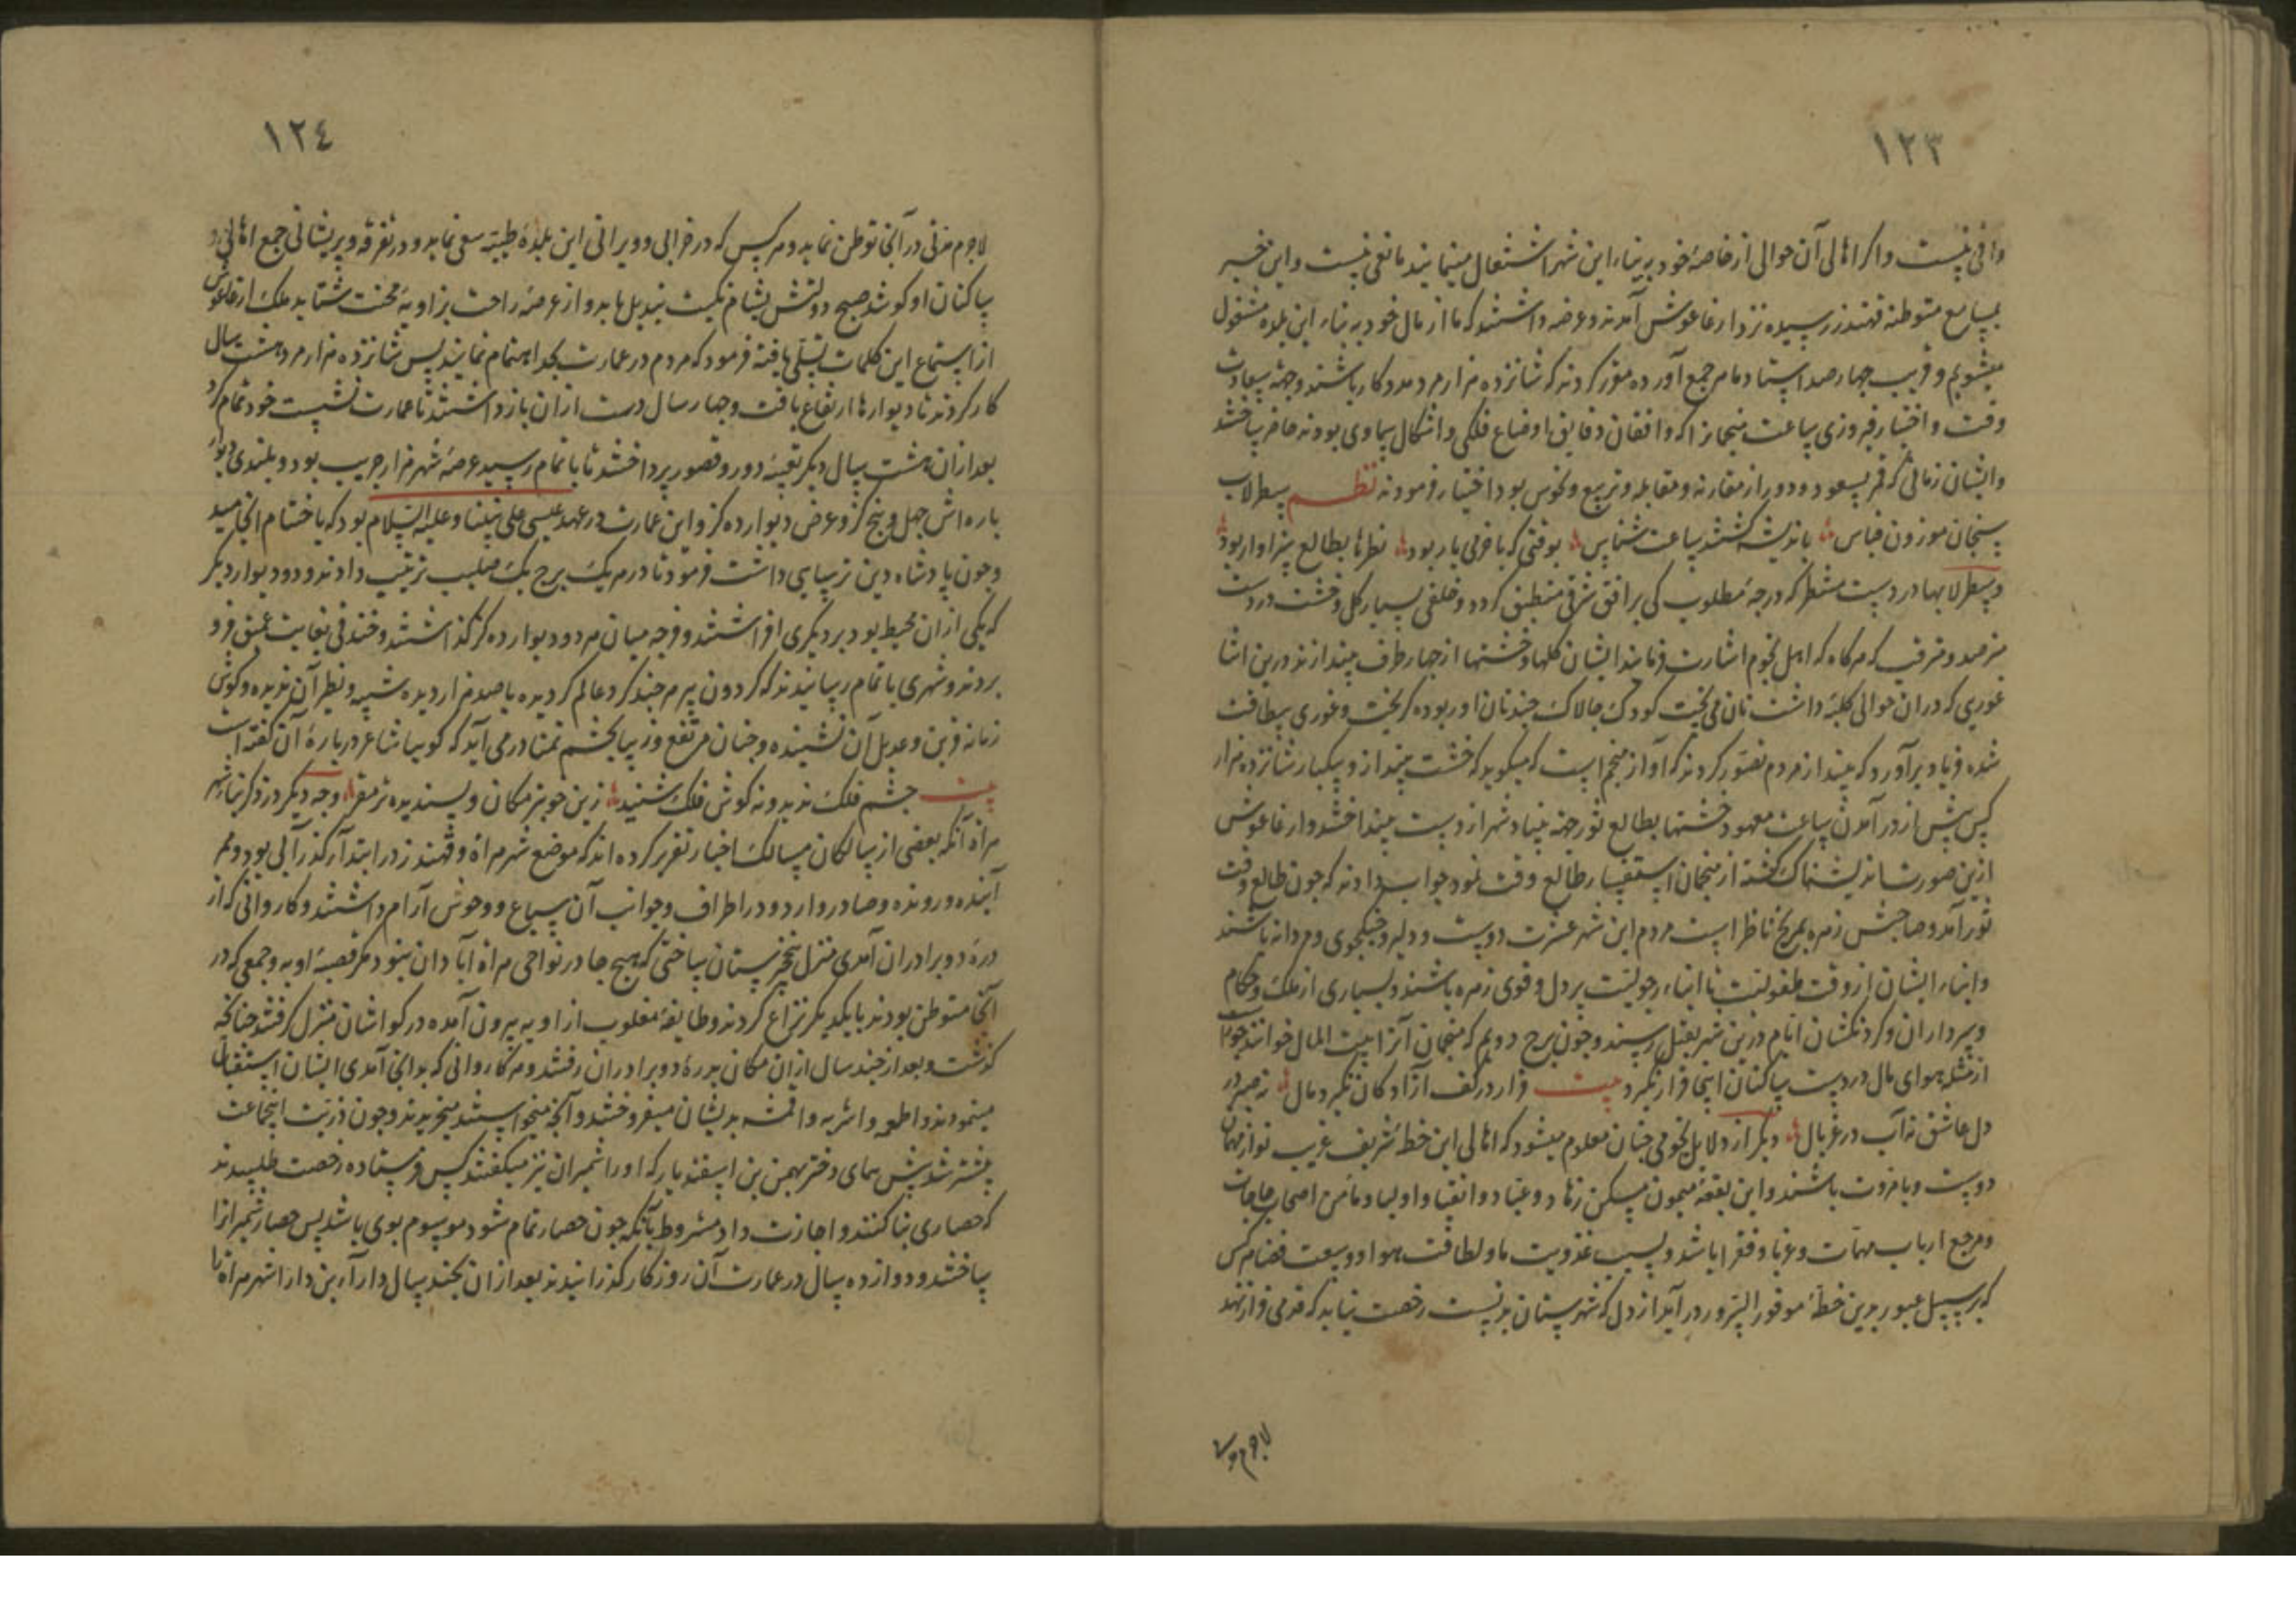 ۱۲۳
وافی نیست و اگر اهالی آن حوالی از خاصهٔ خود به بناء این شهر اشتغال مینمایند مانعی نیست و این خبر
بمسامع متوطنه قهندز رسیده نزد ارغاغوش آمدند و عرضه داشتند که ما از مال خود به بناء این بلده مشغول
میشویم و قریب چهارصد استاد ماهر جمع آورده مقرر کردند که شانزده هزار مرد مددکار باشند و جهة سعادت
وقت و اختیار فیروزی ساعت منجمانرا که واقفان دقایق اوضاع فلکی و اشکال سماوی بودند حاضر ساختند
و ایشان زمانی که قمر بسعود و دور از مقارنه و مقابله و تربیع و نحوس بود اختیار فرمودند نظم سطرلاب
سنجان موزون قیاس باندیشه گشتند ساعت شناس بوقتی که با فرخی یار بود نظرها بطالع سزاوار بود
و سطرلابها در دست منتظر که درجهٔ مطلوب کی بر افق شرقی منطبق گردد و خلقی بسیار گل و خشت در دست
مترصد و مترقب که هرگاه که اهل نجوم اشارت فرمایند ایشان گلها و خشتها از چهار طرف بیندازند درین اثنا
عوری که در ان حوالی کلبهٔ داشت نان می‌پخت کودک چالاک چند نان او ربوده گریخت و عوری بیطاقت
شده فریاد برآورد که بینداز مردم تصور کردند که آواز منجم است که میگوید که خشت بینداز و بیکبار شانزده هزار
کس پیش از درآمدن ساعت معهود خشتها بطالع ثور جهة بنیاد شهر از دست بینداختند و ارغاغوش
ازین صورت اندیشناک گشته از منجمان استفسار طالع وقت نمود جواب دادند که چون طالع وقت
ثور آمد و صاحبش زهره بمریخ ناظر است مردم این شهر عشرت دوست و دلیر و جنگجوی و مردانه باشند
و ابناء ایشان از وقت طفولیت تا انتهاء رجولیت پر دل و قوی زهره باشند و بسیاری از ملک و حکام
و سرداران و گردنکشان ایام درین شهر بقتل رسند و چون برج دویم که منجمان آنرا بیت المال خوانند جوزا
از مثلثه هوای مال در دست ساکنان اینجا قرار نگیرد بیت قرار در کف آزادگان نگیرد مال نه صبر در
دل عاشق نه آب در غربال دیگر از دلایل نجومی چنان معلوم میشود که اهالی این خطهٔ شریف غریب نواز مهمان
دوست و با مروت باشند و این بقعهٔ میمون مسکن زهاد و عباد و اتقیا و اولیا و مأمن اصحاب حاجات
و مرجع ارباب مهمات و غربا و فقرا باشد و بسبب عذوبت ماء و لطافت هوا و وسعت فضا هر کس
که بر سبیل عبور بدین خطهٔ موفور السرور درآید از دل که شهرستان بدنست رخصت نیابد که قدمی فراتر نهد
لاجرم
۱۲٤
لاجرم مدتی در آنجا توطن نماید و هر کس که در خرابی و ویرانی این بلدهٔ طیبه سعی نماید و در تفرقه و پریشانی جمع اهالی و
ساکنان او کوشد صبح دولتش بشام نکبت تبدیل یابد و از عرصهٔ راحت بزاویهٔ محنت شتابد ملک ارغاغوش
از استماع این کلمات تسلی یافته فرمود که مردم در عمارت بجد اهتمام نمایند پس شانزده هزار مرد هشت سال
کار کردند تا دیوارها ارتفاع یافت و چهار سال دست از ان باز داشتند تا عمارت نشست خود تمام کرد
بعد از ان هشت سال دیگر بقیهٔ دور و قصور پرداختند تا باتمام رسید عرصهٔ شهر هزار جریب بود و بلندی دیوار
باره‌اش چهل و پنج گز و عرض دیوار ده گز و این عمارت در عهد عیسی علی نبینا و علیه السلام بود که باختتام انجامید
و چون پادشاه دین ترسایی داشت فرمود تا در هر یک برج یک صلیب ترتیب دادند و دو دیوار دیگر
که یکی از ان محیط بود بر دیگری افراشتند و فرجه میان هر دو دیوار ده گز گذاشتند و خندقی بغایت عمیق فرو
بردند و شهری باتمام رسانیدند که گردون پیر هر چند گرد عالم گردیده با صد هزار دیده شبیه و نظیر آن ندیده و گوش
زمانه قرین و عدیل آن نشنیده و چنان مرتفع و زیبا بچشم تمنا درمی‌آید که گوییا شاعر دربارهٔ آن گفته است
بیت چشم فلک ندید و نه گوش فلک شنید زین خوبتر مکان و پسندیده‌تر مقر وجه دیگر در ذکر بناء شهر
هراة آنکه بعضی از سالکان مسالک اخبار تقریر کرده‌اند که موضع شهر هراة و قهندز در ابتدا رکذر آبی بود و ممر
آینده و رونده و صادر و وارد و در اطراف و جوانب آن سباع و وحوش آرام داشتند و کاروانی که از
درهٔ دو برادران آمدی منزل بخرستان ساختی که هیچ جا در نواحی هراة آبادان نبود مگر قصبهٔ اوبه و جمعی که در
آنجا متوطن بودند با یکدیگر نزاع کردند و طایفهٔ مغلوب از اوبه بیرون آمده در کواشان منزل گرفتند چنانچه
گذشت و بعد از چند سال از ان مکان بدرهٔ دو برادران رفتند و هر کاروانی که بدانجا آمدی ایشان استقبال
مینمودند و اطعمه و اشربه و اقمشه بدیشان میفروختند و آنچه میخواستند میخریدند و چون ذریت اینجماعت
بیشتر شد پیش همای دختر بهمن بن اسفندیار که او را شمیران نیز میگفتند کس فرستاده رخصت طلبیدند
که حصاری بنا کنند و اجازت داد مشروط بآنکه چون حصار تمام شود موسوم بوی باشد پس حصار شمیرانرا
ساختند و دوازده سال در عمارت آن روزگار گذرانیدند بعد از ان بچند سال دارآ بن دارا شهر هراة را